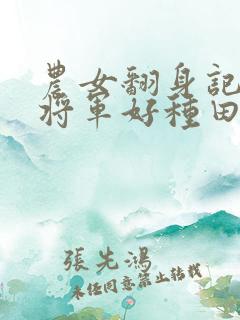 農女翻身記
將軍好種田
張先鴻
未經同意禁止轉載